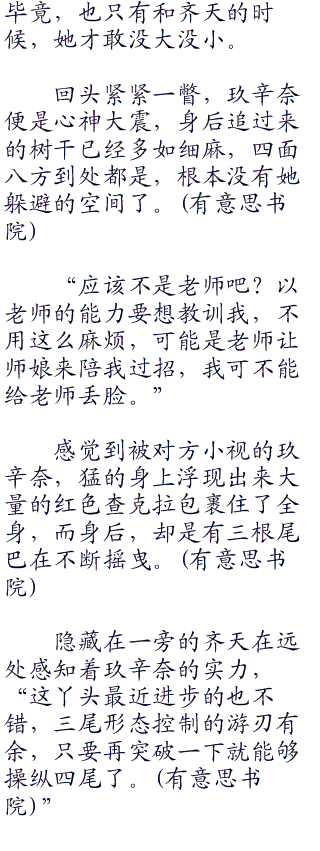 毕竟，也只有和齐天的时
候，她才敢没大没小。
回头紧紧一瞥，玖辛奈
便是心神大震，身后追过来
的树干已经多如细麻，四面
八方到处都是，根本没有她
躲避的空间了。(有意思书
院)
“应该不是老师吧？以
老师的能力要想教训我，不
用这么麻烦，可能是老师让
师娘来陪我过招，我可不能
给老师丢脸。”
感觉到被对方小视的玖
辛奈，猛的身上浮现出来大
量的红色查克拉包裹住了全
身，而身后，却是有三根尾
巴在不断摇曳。(有意思书
院)
隐藏在一旁的齐天在远
处感知着玖辛奈的实力，
“这丫头最近进步的也不
错，三尾形态控制的游刃有
余，只要再突破一下就能够
操纵四尾了。(有意思书
院)”